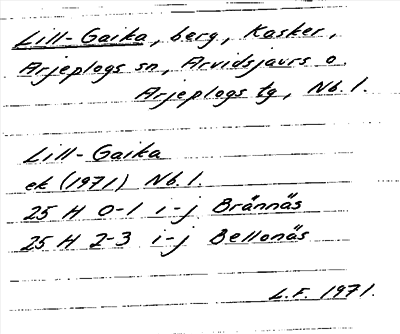 Lill-Gaika, berg, Kasker,
Arjeplogs sn, Arvidsjaurs o.
Arjeplogs tg, Nb. l.
Lill-Gaika
ek (1971) Nb. l.
25 H 0-1 i-j Brännäs
25 H 2-3 i-j Bellonäs
L.F. 1971.